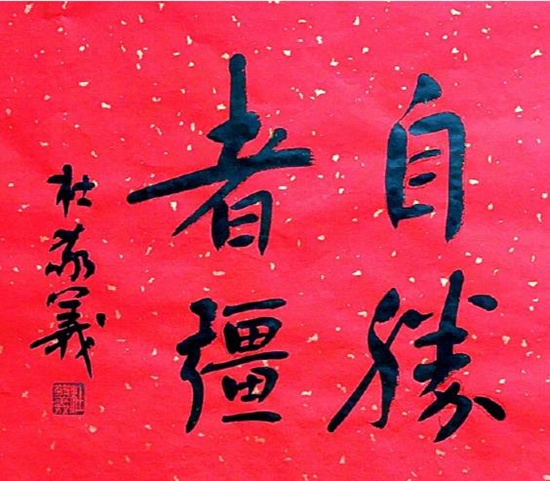 自勝
者彊
杜敬義